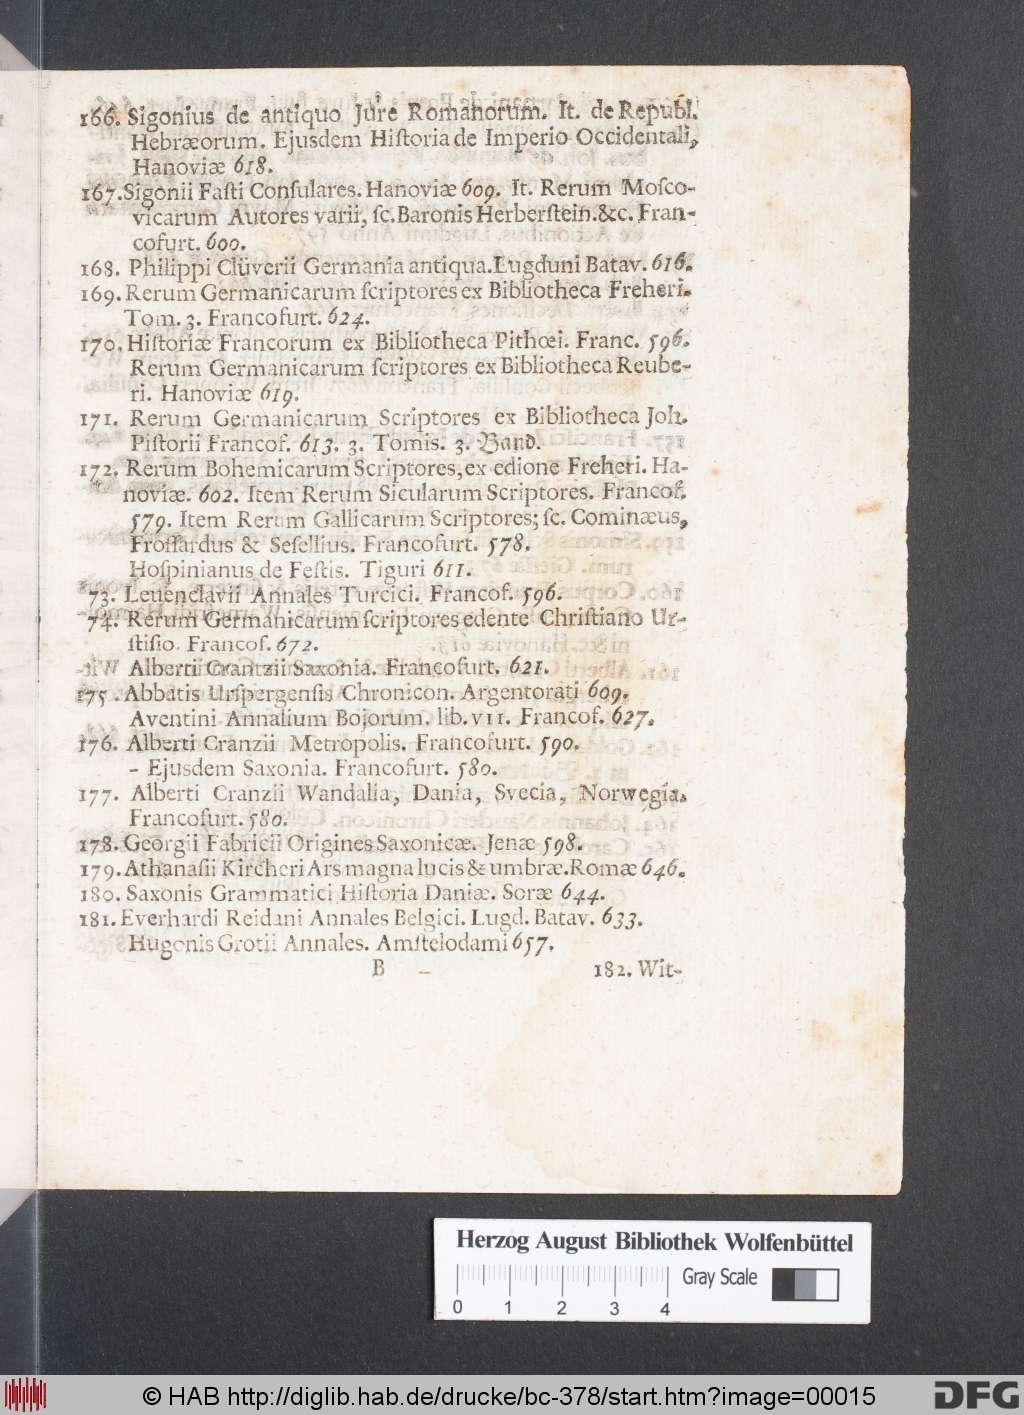 166. Sigonius de antiquo Jure Romanorum. It. de Republ.
Hebræorum. Ejusdem Hiſtoria de Imperio Occidentali,
Hanoviæ 618.
167. Sigonii Faſti Conſulares. Hanoviæ 609. It. Rerum Moſco-
vicarum Autores varii, ſc. Baronis Herberſtein. &c. Fran-
cofurt. 600.
168. Philippi Clüverii Germania antiqua. Lugduni Batav. 616.
169. Rerum Germanicarum ſcriptores ex Bibliotheca Freheri.
Tom. 3. Francofurt. 624.
170. Hiſtoriæ Francorum ex Bibliotheca Pithœi. Franc. 596.
Rerum Germanicarum ſcriptores ex Bibliotheca Reube-
ri. Hanoviæ 619.
171. Rerum Germanicarum Scriptores ex Bibliotheca Joh.
Piſtorii Francof. 613. 3. Tomis. 3. Band.
172. Rerum Bohemicarum Scriptores, ex edione Freheri. Ha-
noviæ. 602. Item Rerum Sicularum Scriptores. Francof.
579. Item Rerum Gallicarum Scriptores; ſc. Cominæus,
Froſſardus & Seſellius. Francofurt. 578.
Hoſpinianus de Feſtis. Tiguri 611.
73. Leuenclavii Annales Turcici. Francof. 596.
74. Rerum Germanicarum ſcriptores edente Chriſtiano Ur-
ſtiſio. Francof. 672.
Alberti Crantzii Saxonia. Francofurt. 621.
175. Abbatis Urſpergenſis Chronicon. Argentorati 609.
Aventini Annalium Bojorum. lib. VII. Francof. 627.
176. Alberti Cranzii Metropolis. Francofurt. 590.
- Ejusdem Saxonia. Francofurt. 580.
177. Alberti Cranzii Wandalia, Dania, Svecia, Norwegia.
Francofurt. 580.
178. Georgii Fabricii Origines Saxonicæ. Jenæ 598.
179. Athanaſii Kircheri Ars magna lucis & umbræ. Romæ 646.
180. Saxonis Grammatici Hiſtoria Daniæ. Soræ 644.
181. Everhardi Reidani Annales Belgici. Lugd. Batav. 633.
Hugonis Grotii Annales. Amſtelodami 657.
B 182. Wit-
Herzog August Bibliothek Wolfenbüttel
Gray Scale
0 1 2 3 4
© HAB http://diglib.hab.de/drucke/bc-378/start.htm?image=00015
DFG